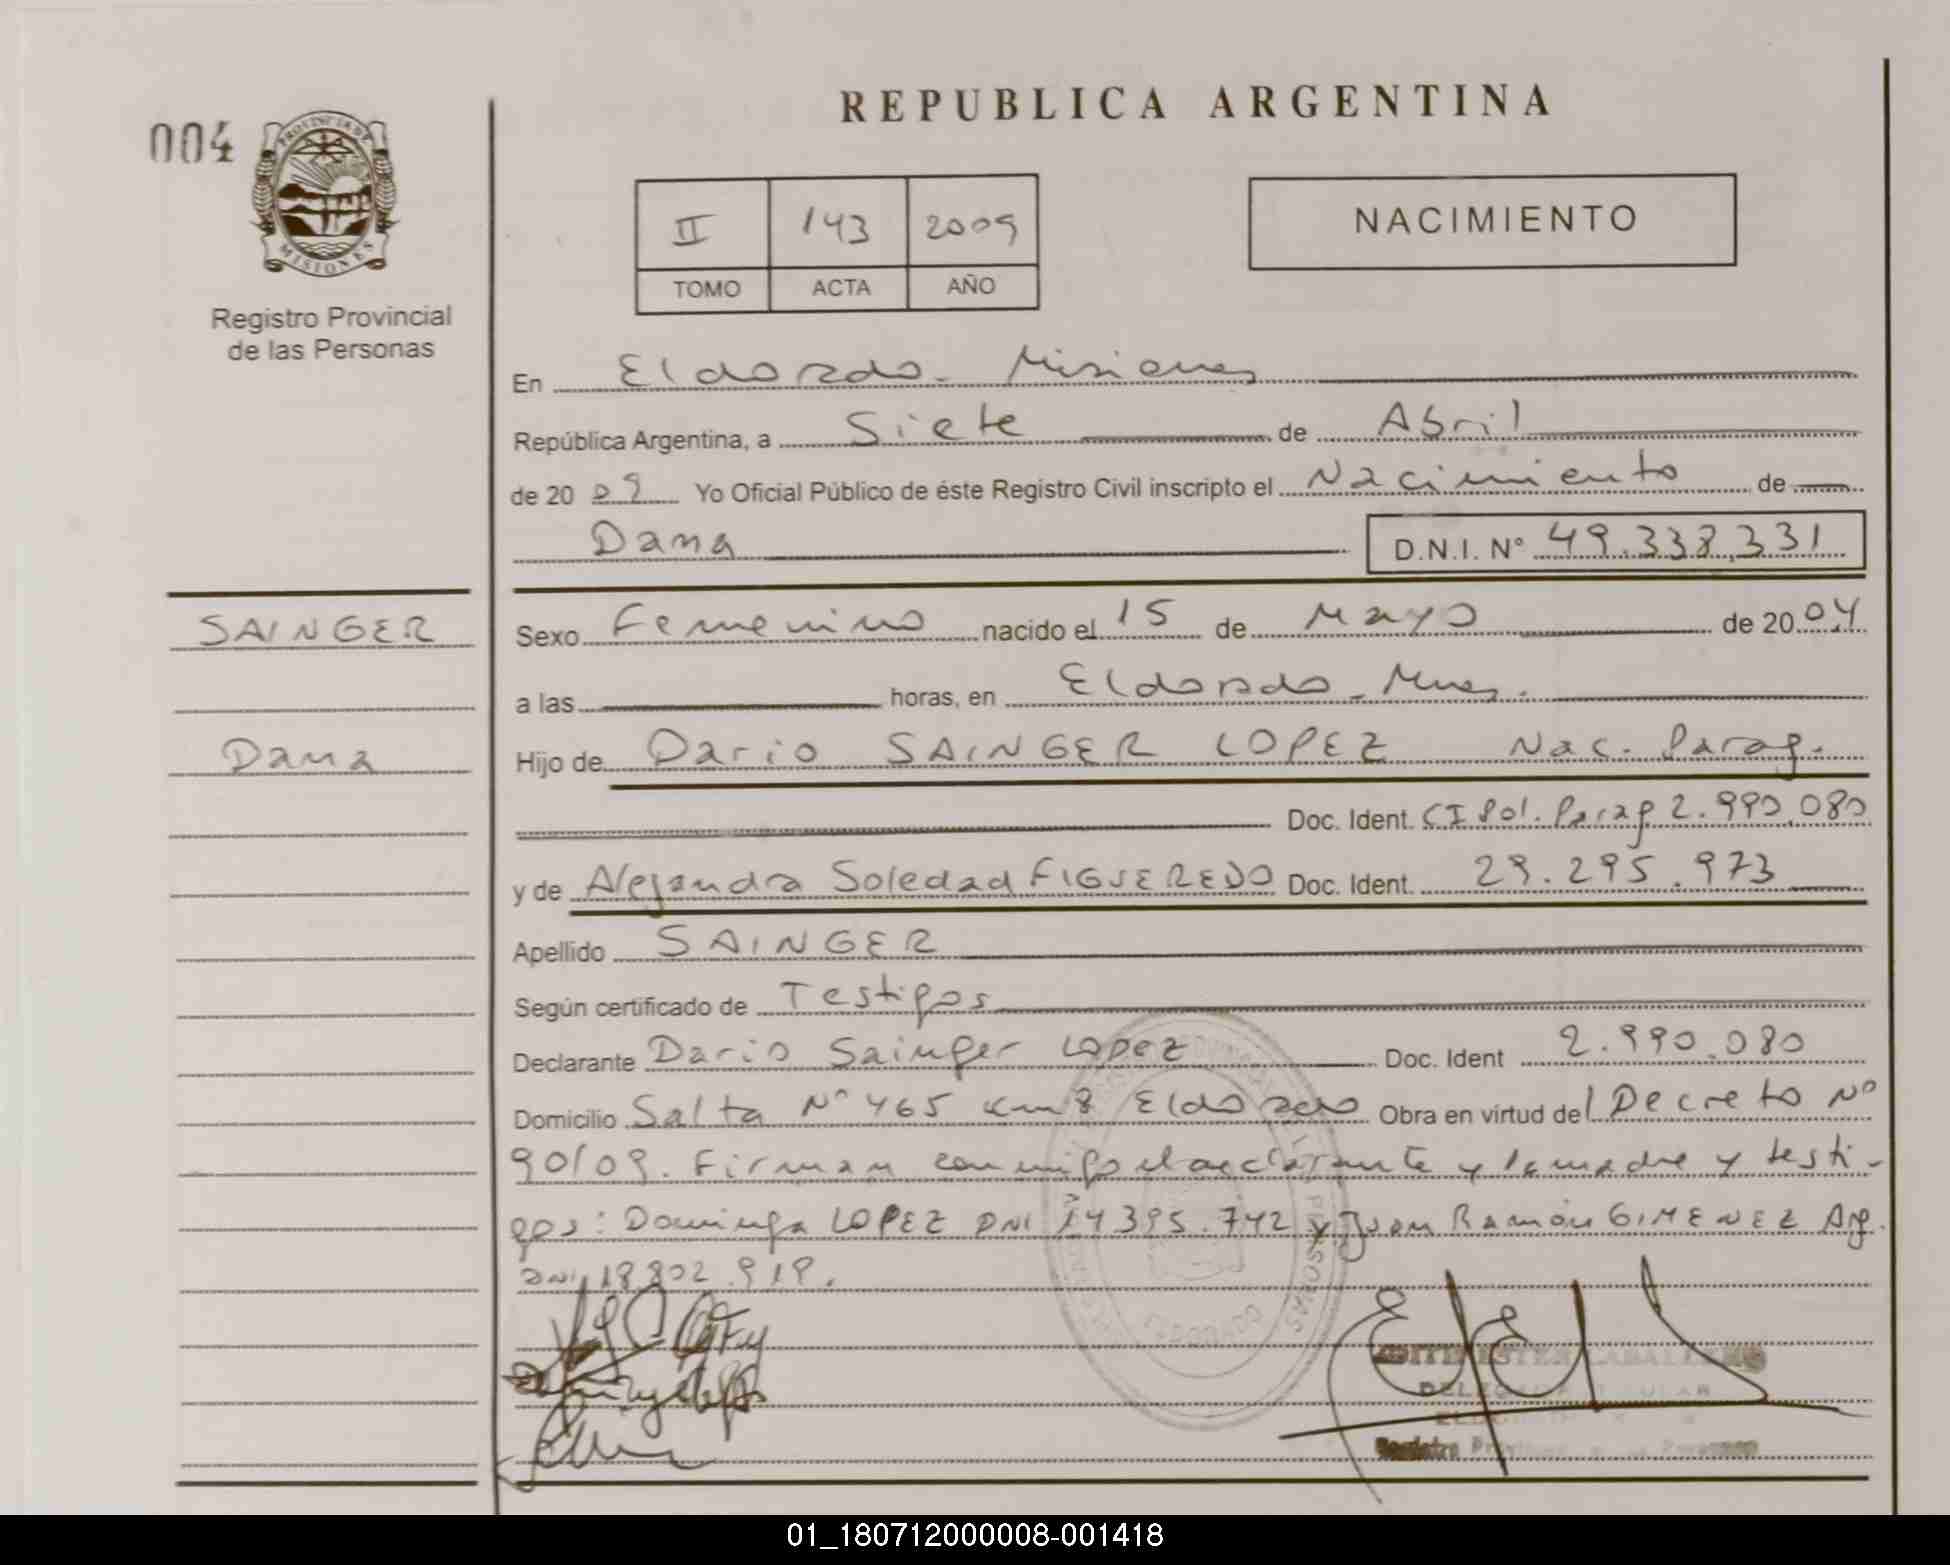 REPUBLICA ARGENTINA
004
PROVINCIA DE
MISIONES
Registro Provincial
de las Personas
II 143 2009
TOMO ACTA AÑO
NACIMIENTO
En Eldorado - Misiones
República Argentina, a Siete de Abril
de 20 09 Yo Oficial Público de éste Registro Civil inscripto el Nacimiento de
Dana D.N.I. Nº 49.338.331
SAINGER
Sexo Femenino nacido el 15 de Mayo de 20 04
a las horas, en Eldorado - Mnes.
Dana
Hijo de Dario SAINGER LOPEZ Nac. Parag.
Doc. Ident. CI Pol. Parag 2.990.080
y de Alejandra Soledad FIGUEREDO Doc. Ident. 29.295.973
Apellido SAINGER
Según certificado de Testigos
Declarante Dario Sainger Lopez Doc. Ident 2.990.080
Domicilio Salta Nº 465 Km 8 Eldorado Obra en virtud del Decreto Nº
90/09. Firman conmigo el declarante y la madre y testi-
gos: Dominga LOPEZ DNI 14.395.742 y Juan Ramón GIMENEZ Arg.
DNI 18.802.919.
ELDORADO
01_180712000008-001418